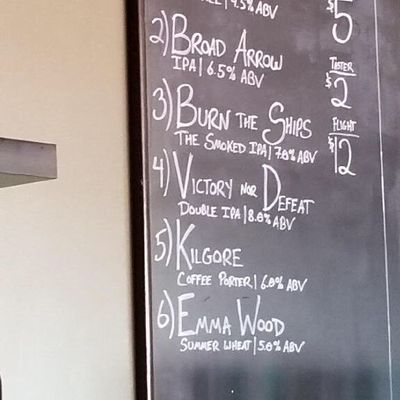 4.5% ABV
$5
2) BROAD ARROW
IPA | 6.5% ABV
TASTER
$2
3) BURN THE SHIPS
THE SMOKED IPA | 7.0% ABV
FLIGHT
$12
4) VICTORY NOR DEFEAT
DOUBLE IPA | 8.0% ABV
5) KILGORE
COFFEE PORTER | 6.0% ABV
6) EMMA WOOD
SUMMER WHEAT | 5.0% ABV